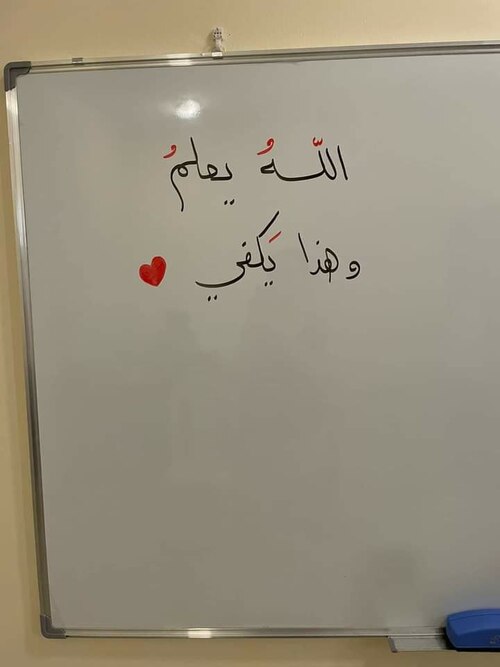 اللّهُ يعلمُ
وهذا يَكفي